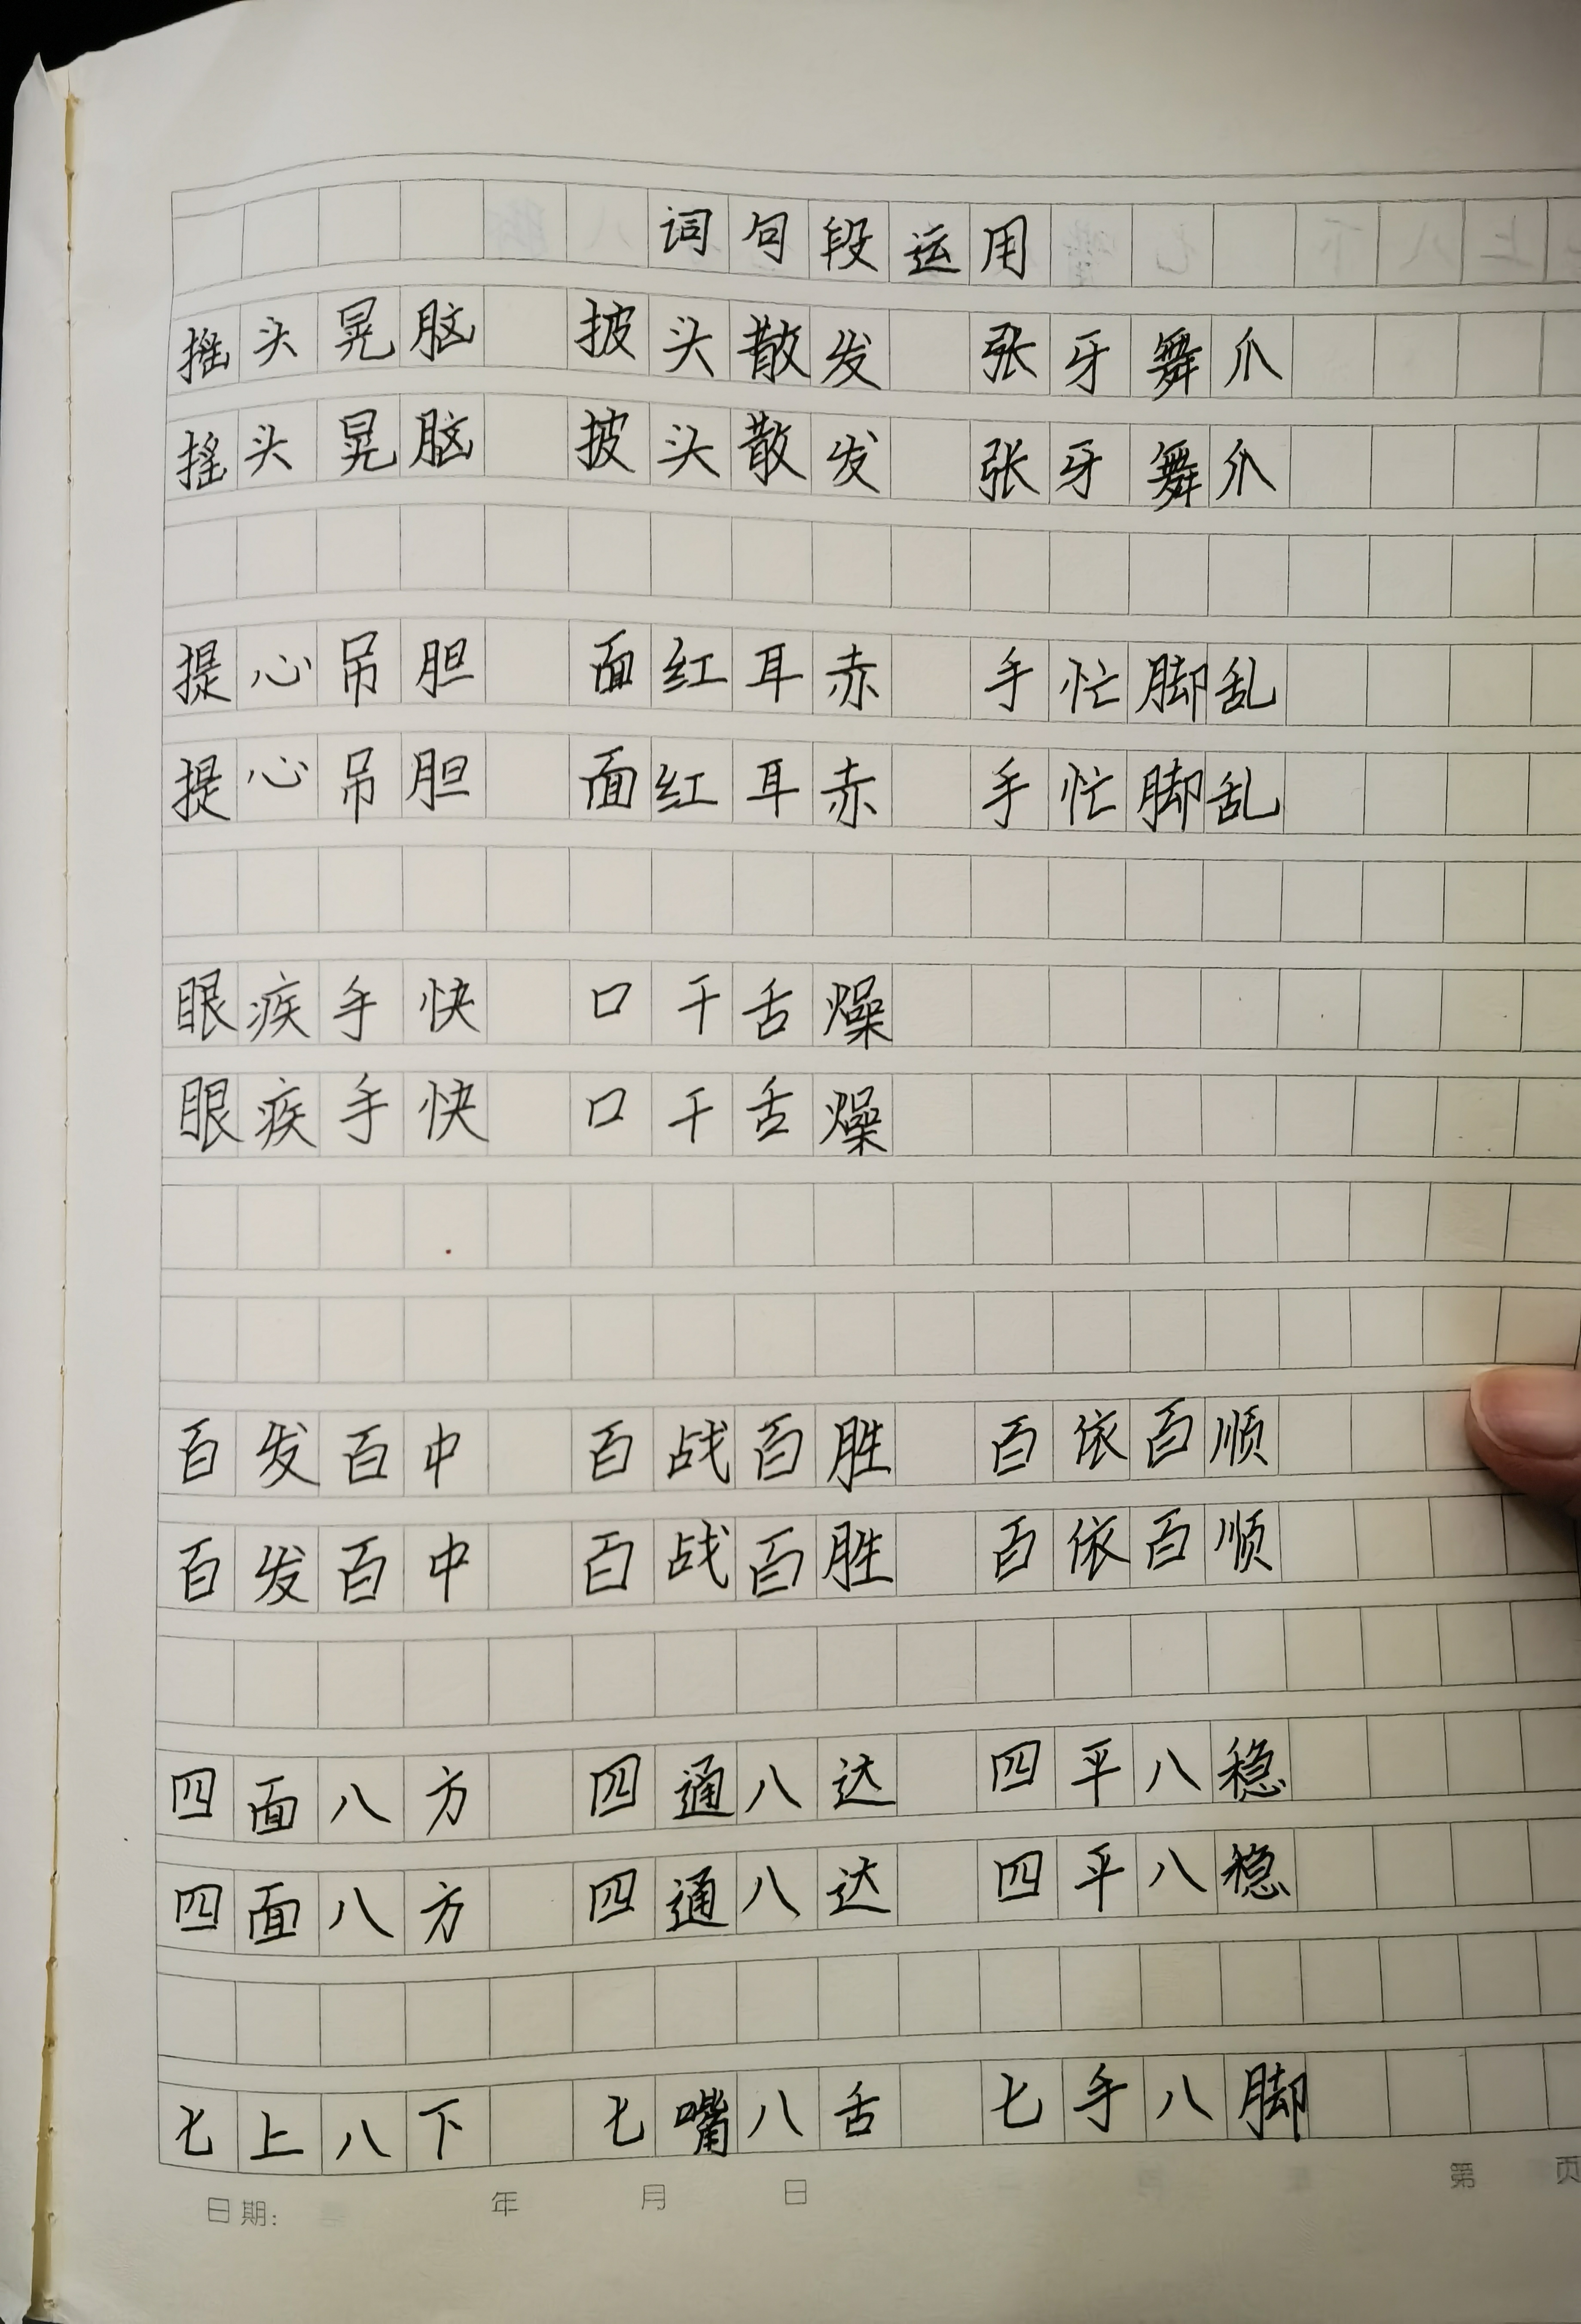 词句段运用
摇头晃脑 披头散发 张牙舞爪
摇头晃脑 披头散发 张牙舞爪
提心吊胆 面红耳赤 手忙脚乱
提心吊胆 面红耳赤 手忙脚乱
眼疾手快 口干舌燥
眼疾手快 口干舌燥
百发百中 百战百胜 百依百顺
百发百中 百战百胜 百依百顺
四面八方 四通八达 四平八稳
四面八方 四通八达 四平八稳
七上八下 七嘴八舌 七手八脚
日期: 年 月 日 第 页